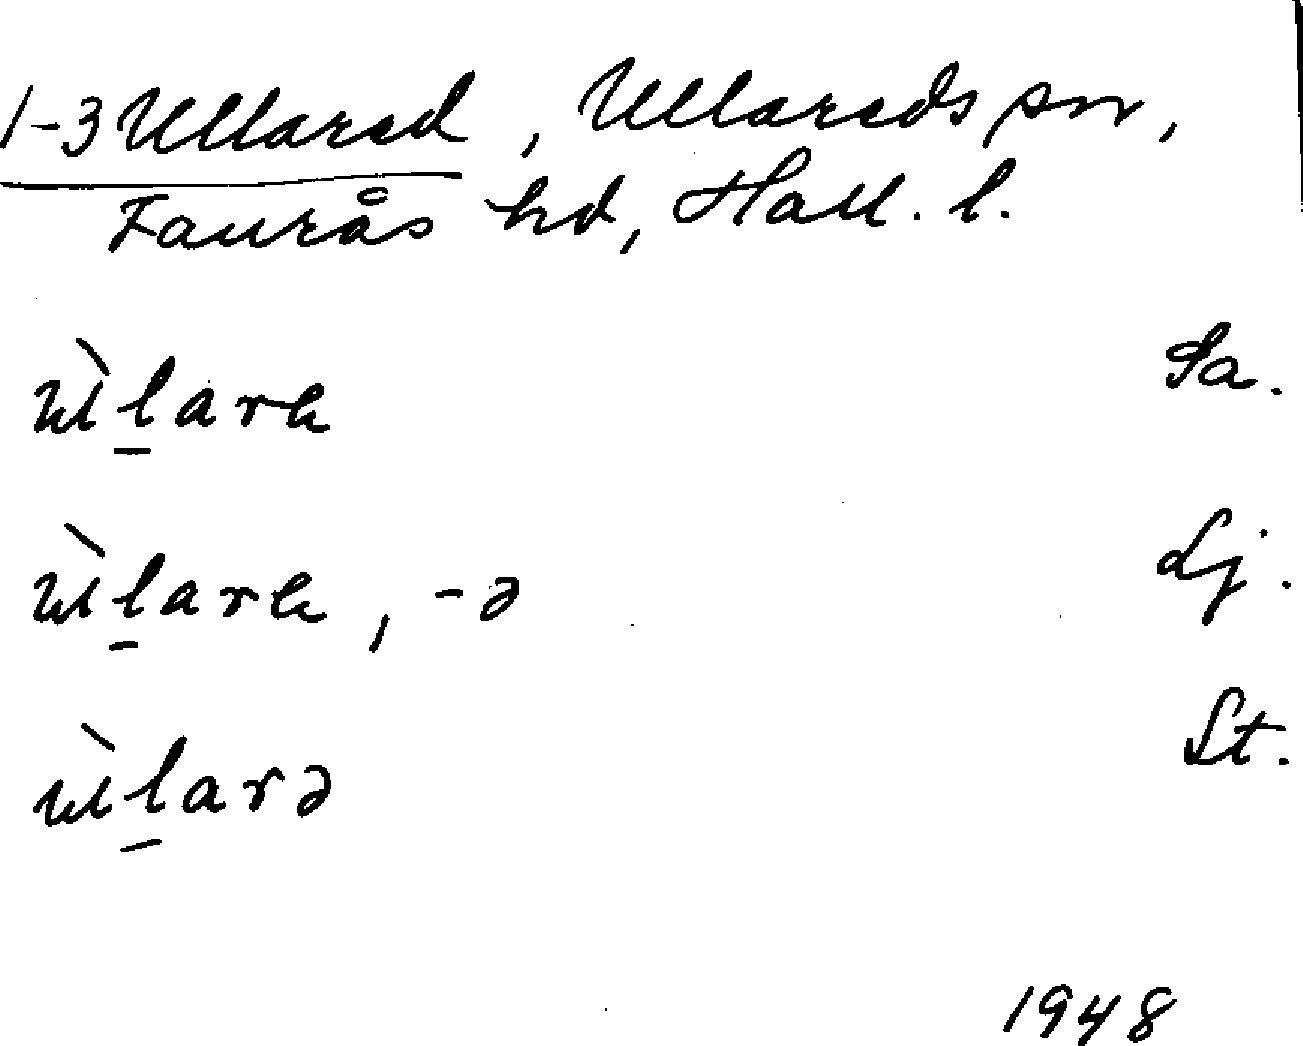 1-3 Ullared, Ullareds sn,
Faurås hd, Hall. l.
ùl̲arɛ Sa.
ùl̲arɛ, -ə Lj.
ùl̲arə St.
1948